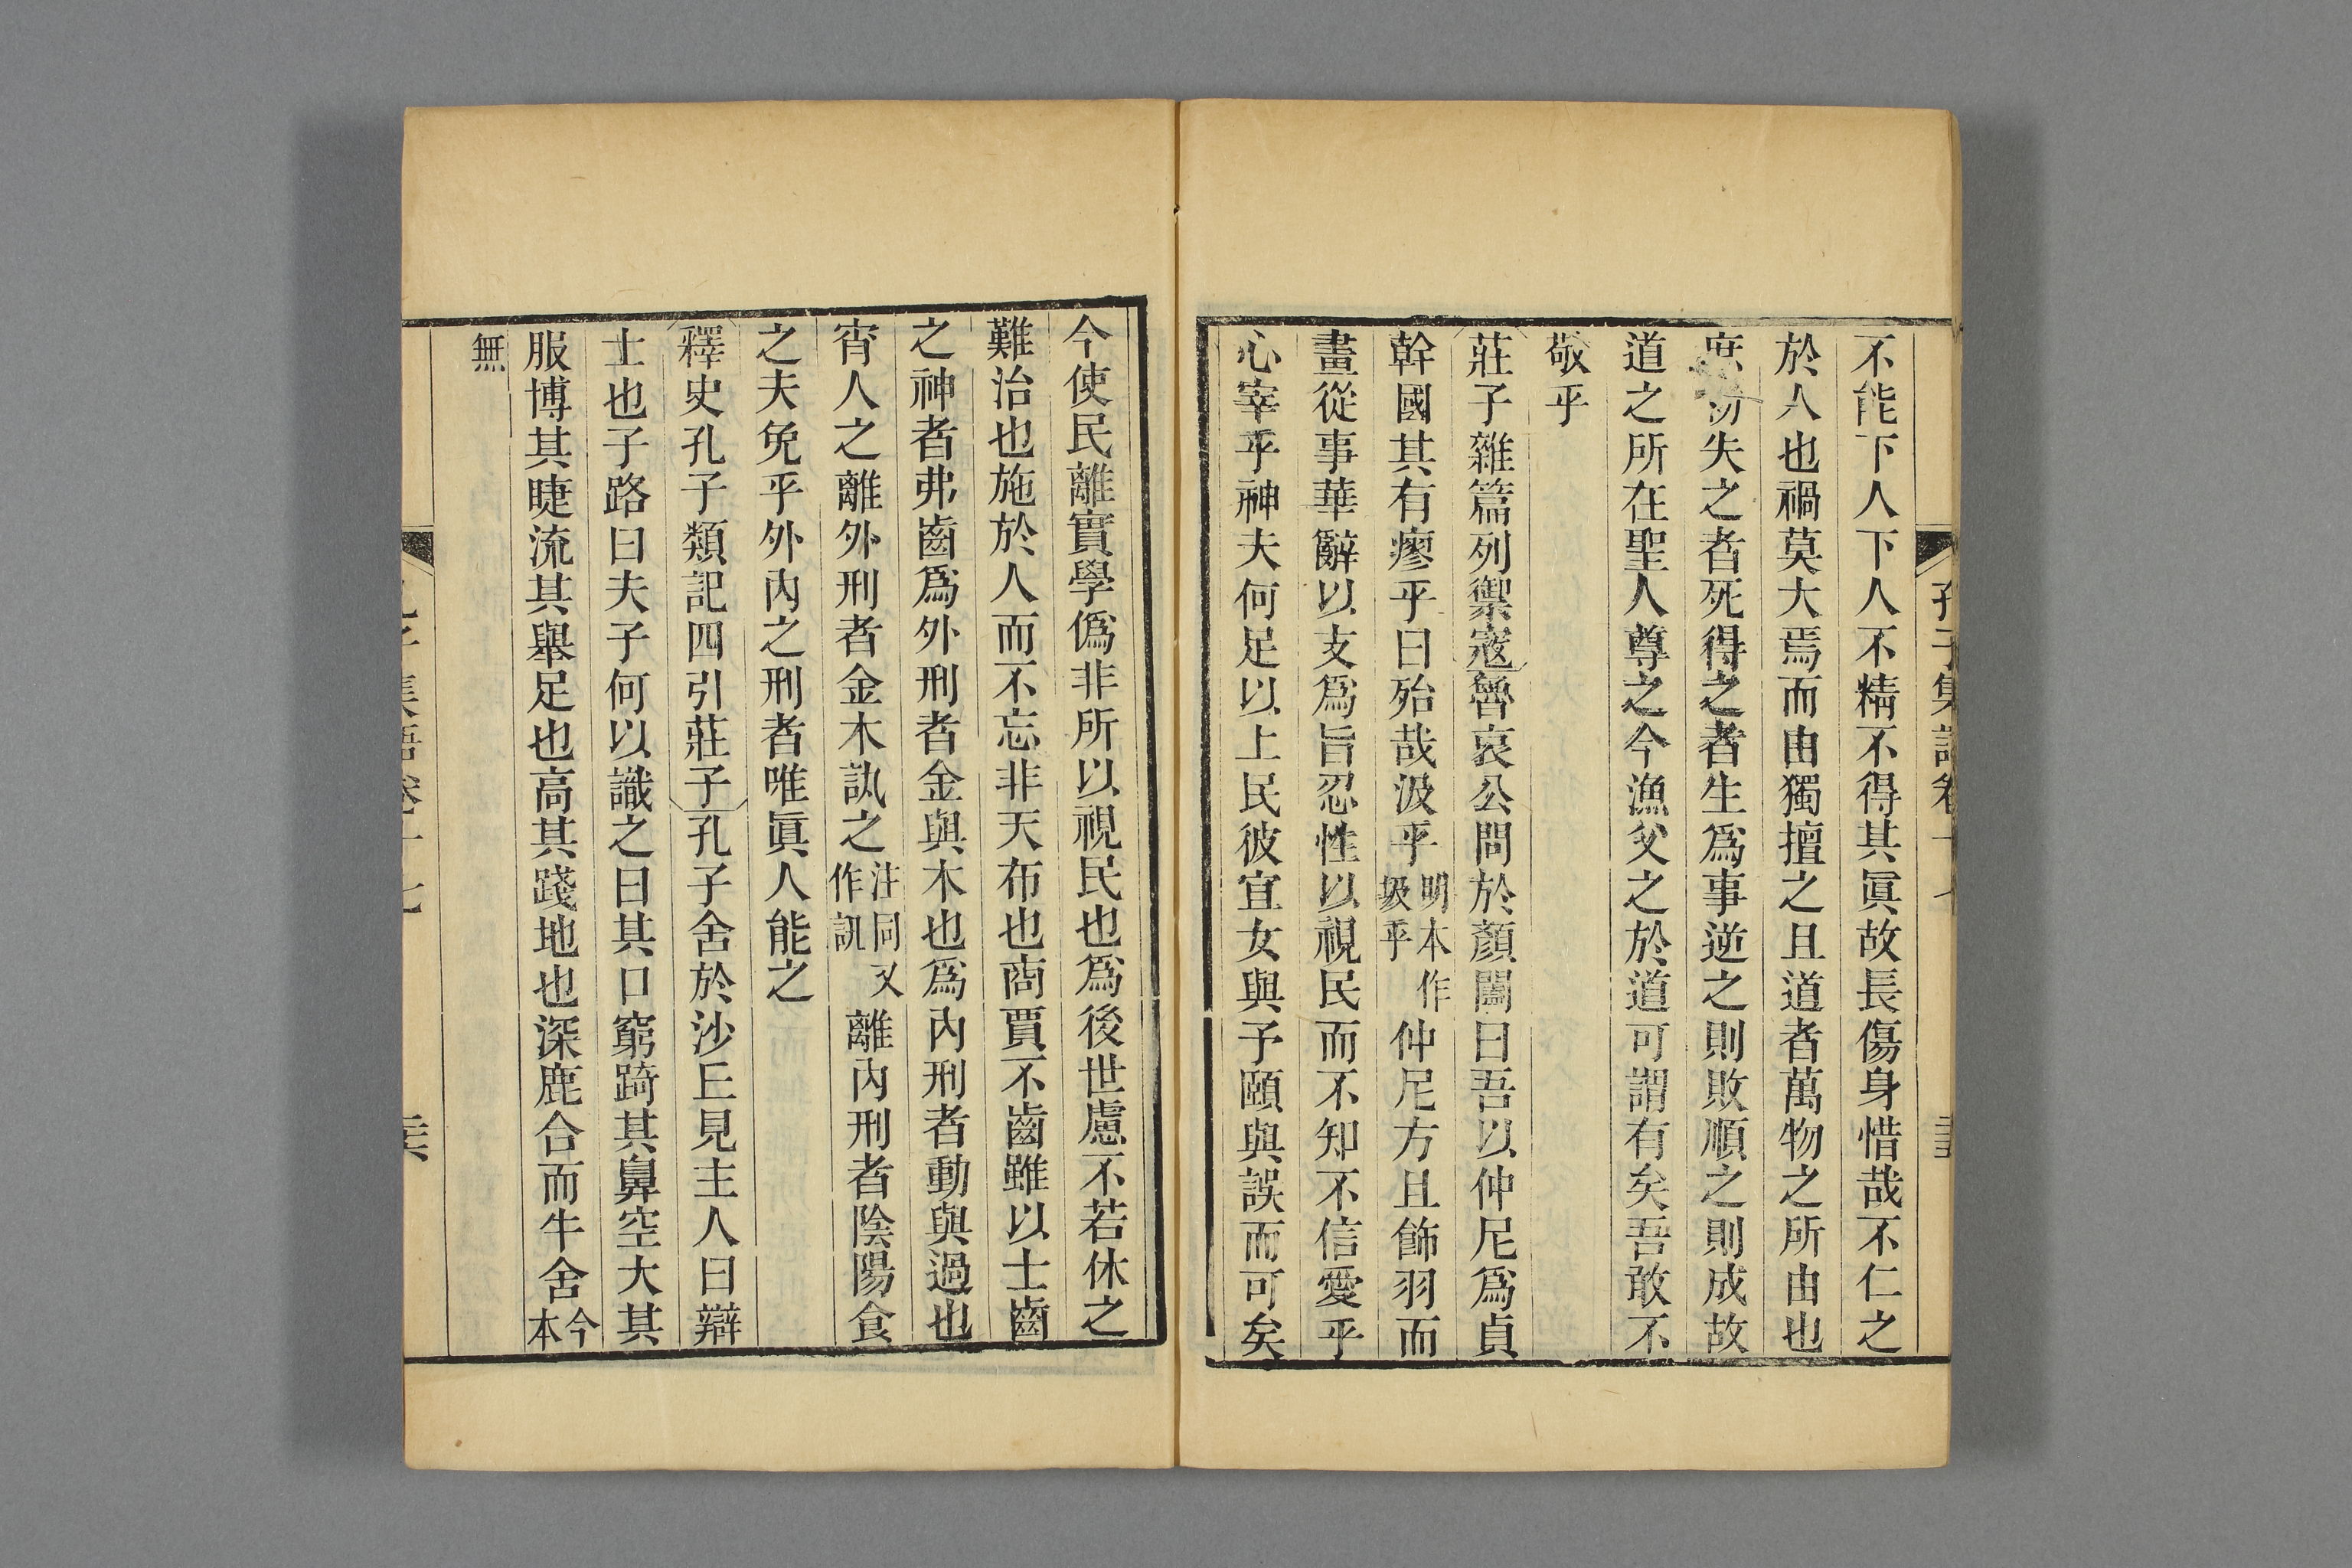 不能下人下人不精不得其眞故長傷身惜哉不仁之
於人也禍莫大焉而由獨擅之且道者萬物之所由也
庶物失之者死得之者生爲事逆之則敗順之則成故
道之所在聖人尊之今漁父之於道可謂有矣吾敢不
敬乎
莊子雜篇列禦寇魯哀公問於顏闔曰吾以仲尼爲貞
幹國其有瘳乎曰殆哉汲乎明本作圾乎仲尼方且飾羽而
畫從事華辭以支爲旨忍性以視民而不知不信愛乎
心宰乎神夫何足以上民彼宜女與予頤與誤而可矣
孔子集語卷十七
今使民離實學僞非所以視民也爲後世慮不若休之
難治也施於人而不忘非天布也商賈不齒雖以士齒
之神者弗齒爲外刑者金與木也爲內刑者動與過也
宵人之離外刑者金木訊之注同又作訊離內刑者陰陽食
之夫免乎外內之刑者唯眞人能之
釋史孔子類記四引莊子孔子舍於沙丘見主人曰辯
士也子路曰夫子何以識之曰其口窮踦其鼻空大其
服博其睫流其舉足也高其踐地也深鹿合而牛舍今本
無
孔子集語卷十七